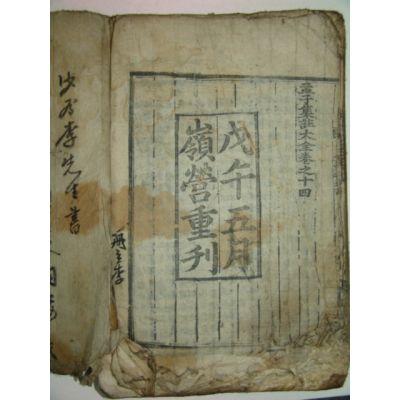 孟子集註大全卷之十四
戊午五月
嶺營重刊
冊主李
李先生書